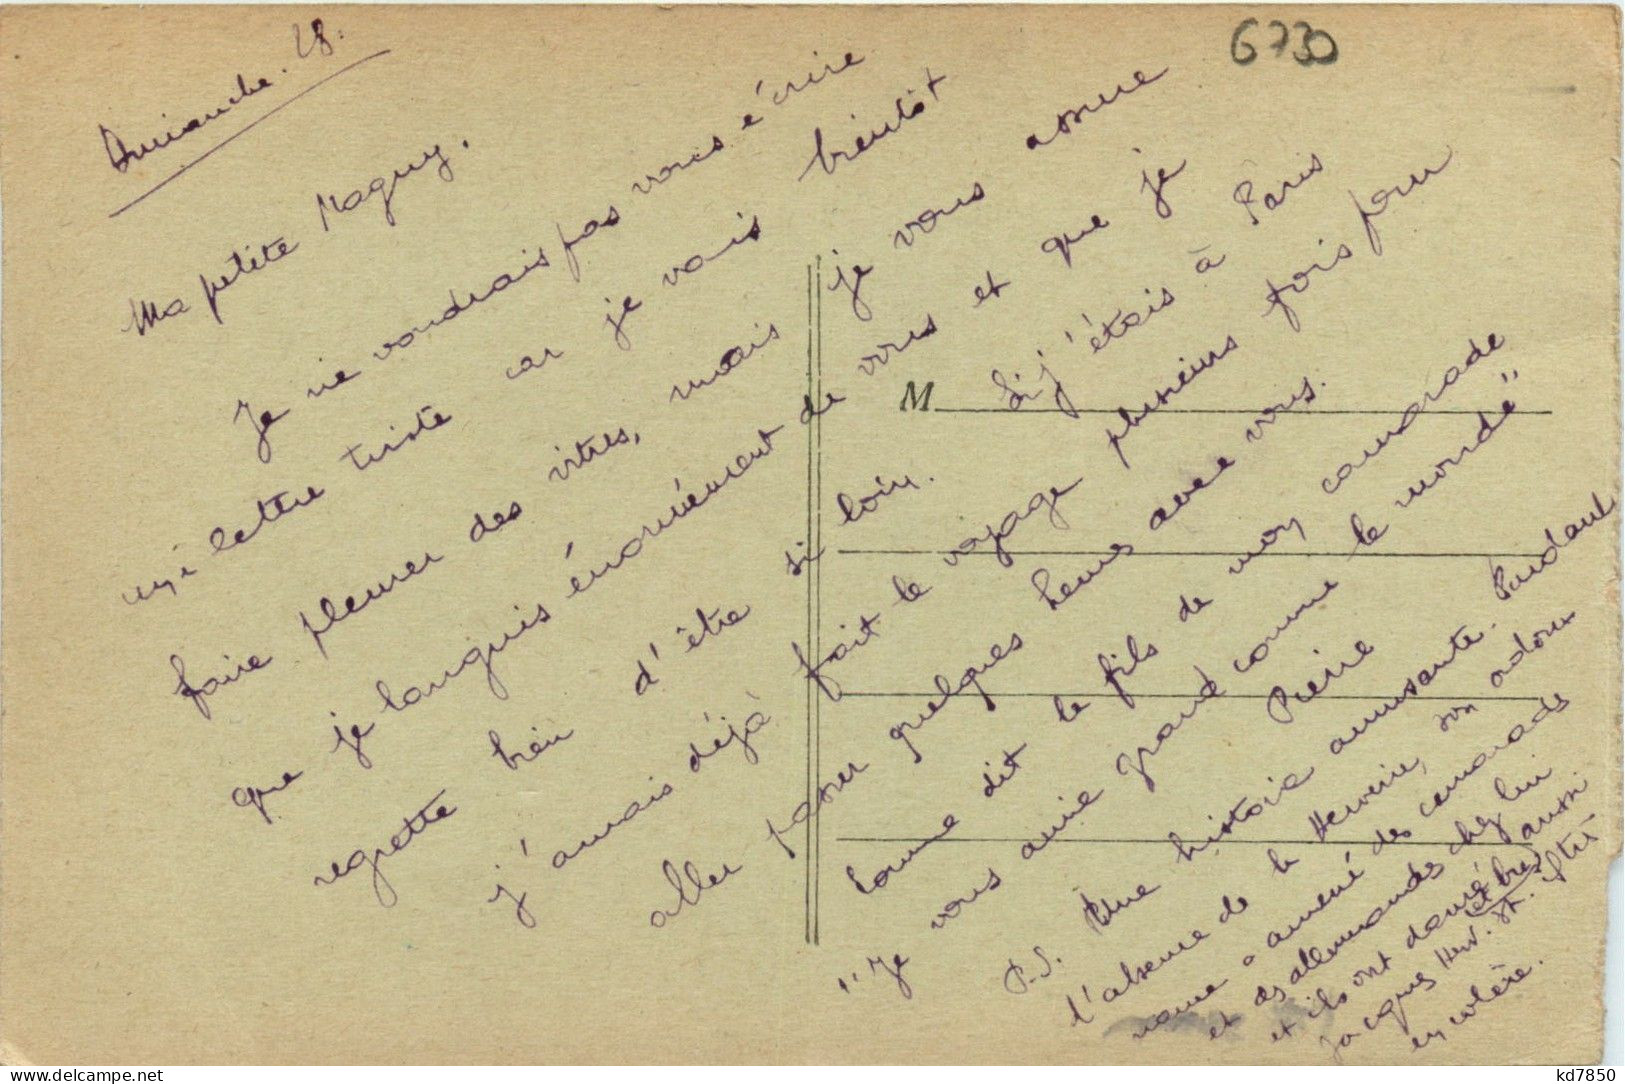 6730
Dimanche. 28.
Ma petite Maguy.
Je ne voudrais pas vous écrire
une lettre triste car je vais bientôt
faire pleurer des vitres, mais je vous assure
que je languis énormément de vous et que je
regrette bien d'être si loin. Si j'étais à Paris
j'aurais déjà fait le voyage plusieurs fois pour
aller passer quelques heures avec vous.
Comme dit le fils de mon camarade
"Je vous aime grand comme le monde"
Pierre
P.S. Une histoire amusante. Pendant
l'absence de la Herveine, son
a amené des camarades
et des allemandes chez lui
et ils ont dansé (et bu) aussi
Jacques Herv. st.
en colère.
M
kd7850